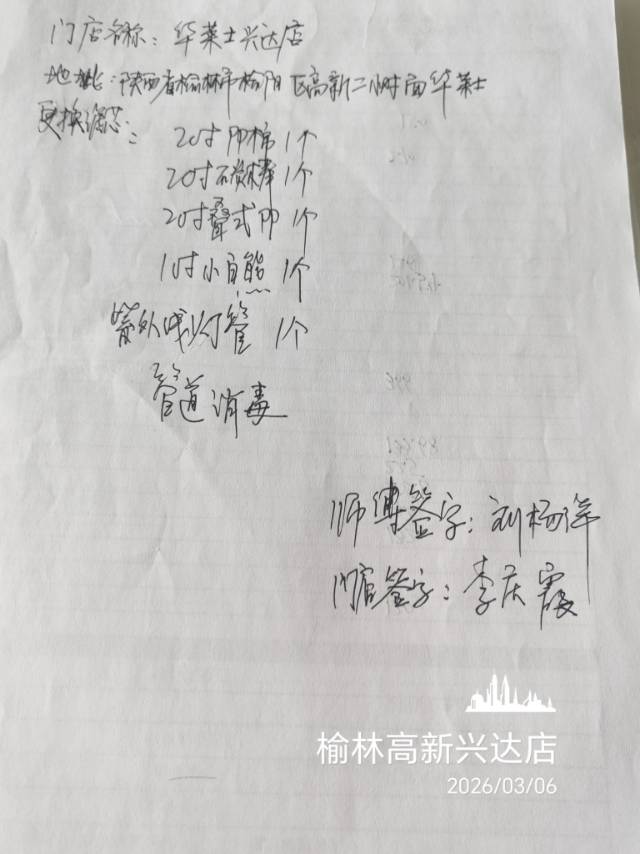 门店名称：华莱士兴达店
地址：陕西省榆林市榆阳区高新二小对面华莱士
更换滤芯：
20寸PP棉1个
20寸碳棒1个
20寸叠式PP1个
10寸小白熊1个
紫外线灯管1个
管道消毒
师傅签字：刘杨洋
门店签字：李庆霞
榆林高新兴达店
2026/03/06